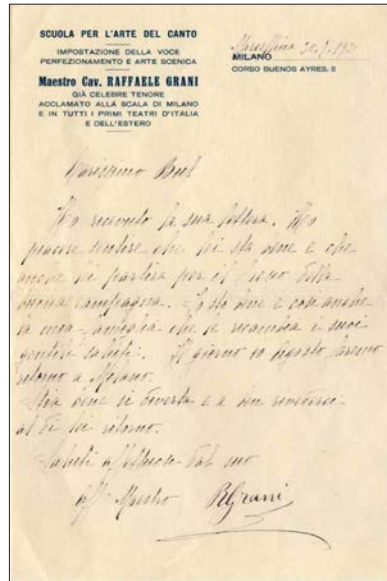 SCUOLA PER L'ARTE DEL CANTO
IMPOSTAZIONE DELLA VOCE
PERFEZIONAMENTO E ARTE SCENICA
Maestro Cav. RAFFAELE GRANI
GIÀ CELEBRE TENORE
ACCLAMATO ALLA SCALA DI MILANO
E IN TUTTI I PRIMI TEATRI D'ITALIA
E DELL'ESTERO
MILANO
CORSO BUENOS AYRES, 5
Carissimo
Ho ricevuto la sua lettera. Ho
piacere sentire che lei sta bene e che
anche lei partirà per il della
buona campagna. Io sto bene e così anche
la mia famiglia che le ricambia i suoi
gentili saluti. Il giorno 10 Agosto faremo
ritorno a Milano.
Stia bene si diverta e a ben rivederci
al di lei ritorno.
Saluti affettuosi dal suo
Aff. Maestro RGrani